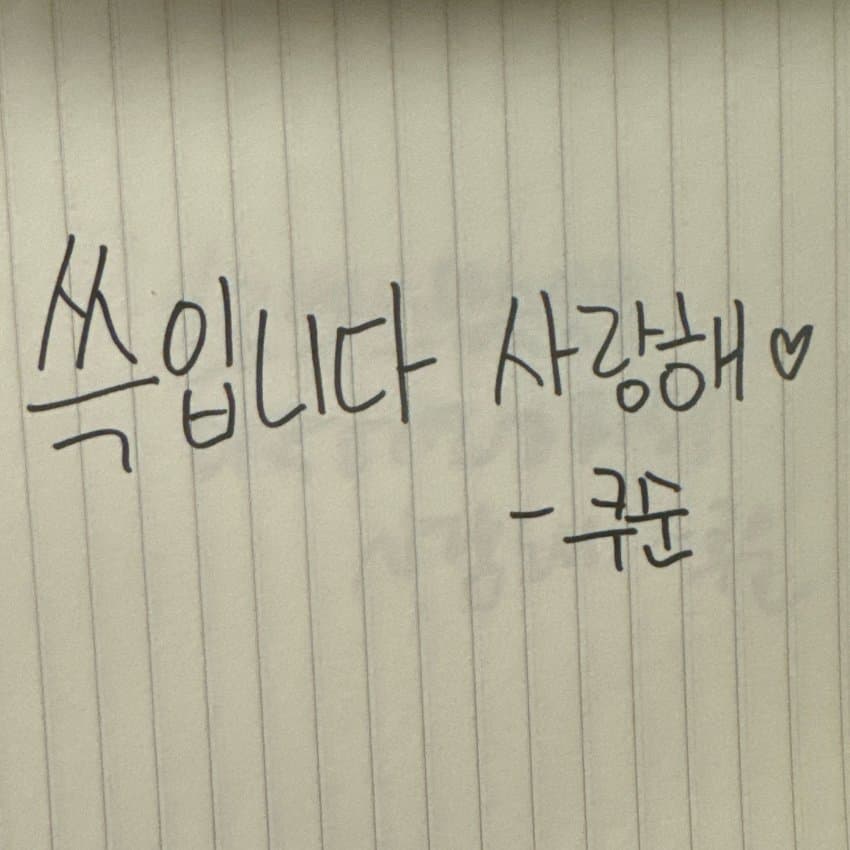 쓱입니다 사랑해♡
- 쿠순